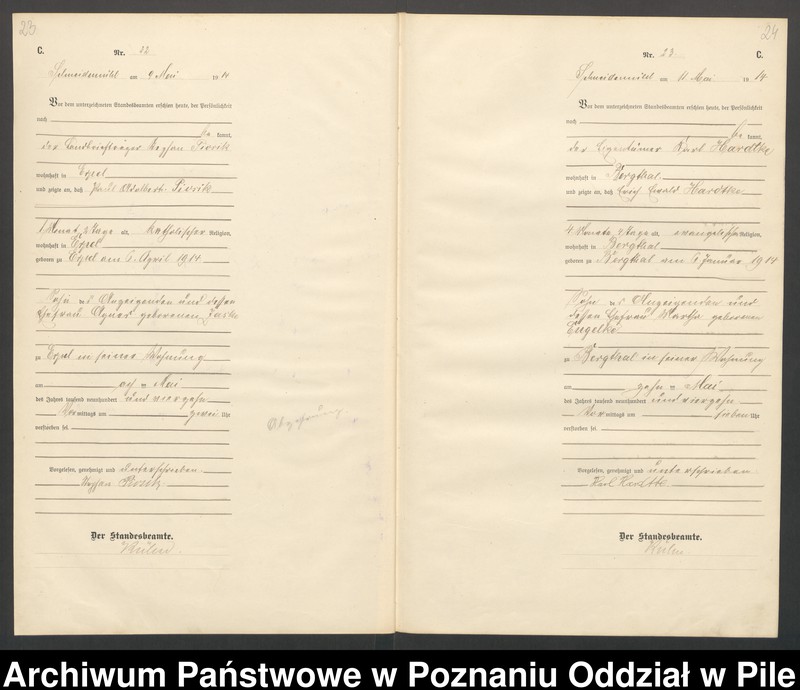 23
C.
Nr. 22
Schneidemühl am 9 Mai 1914
Vor dem unterzeichneten Standesbeamten erschien heute, der Persönlichkeit
nach
be kannt,
der Landbriefträger Stephan
wohnhaft in
und zeigte an, daß Adalbert
1 Monat 2 Tage alt, katholischer Religion,
wohnhaft in
geboren zu am 6 April 1914
Sohn des Anzeigenden und dessen
Ehefrau Agnes geborenen
zu in seiner Wohnung
am acht ten Mai
des Jahres tausend neunhundert und vierzehn
Vor mittags um zwei Uhr
verstorben sei.
Vorgelesen, genehmigt und unterschrieben
Stephan
Der Standesbeamte.
24
Nr. 23 C.
Schneidemühl am 11 Mai 1914
Vor dem unterzeichneten Standesbeamten erschien heute, der Persönlichkeit
nach
be kannt,
der Eigentümer Karl Hardtke
wohnhaft in Bergthal
und zeigte an, daß Erich Ewald Hardtke
4 Monate 2 Tage alt, evangelischer Religion,
wohnhaft in Bergthal
geboren zu Bergthal am 6 Januar 1914
Sohn des Anzeigenden und
dessen Ehefrau Martha geborenen
Engelke
zu Bergthal in seiner Wohnung
am zehn ten Mai
des Jahres tausend neunhundert und vierzehn
Vor mittags um sieben Uhr
verstorben sei.
Vorgelesen, genehmigt und unterschrieben
Karl Hardtke
Der Standesbeamte.
Archiwum Państwowe w Poznaniu Oddział w Pile